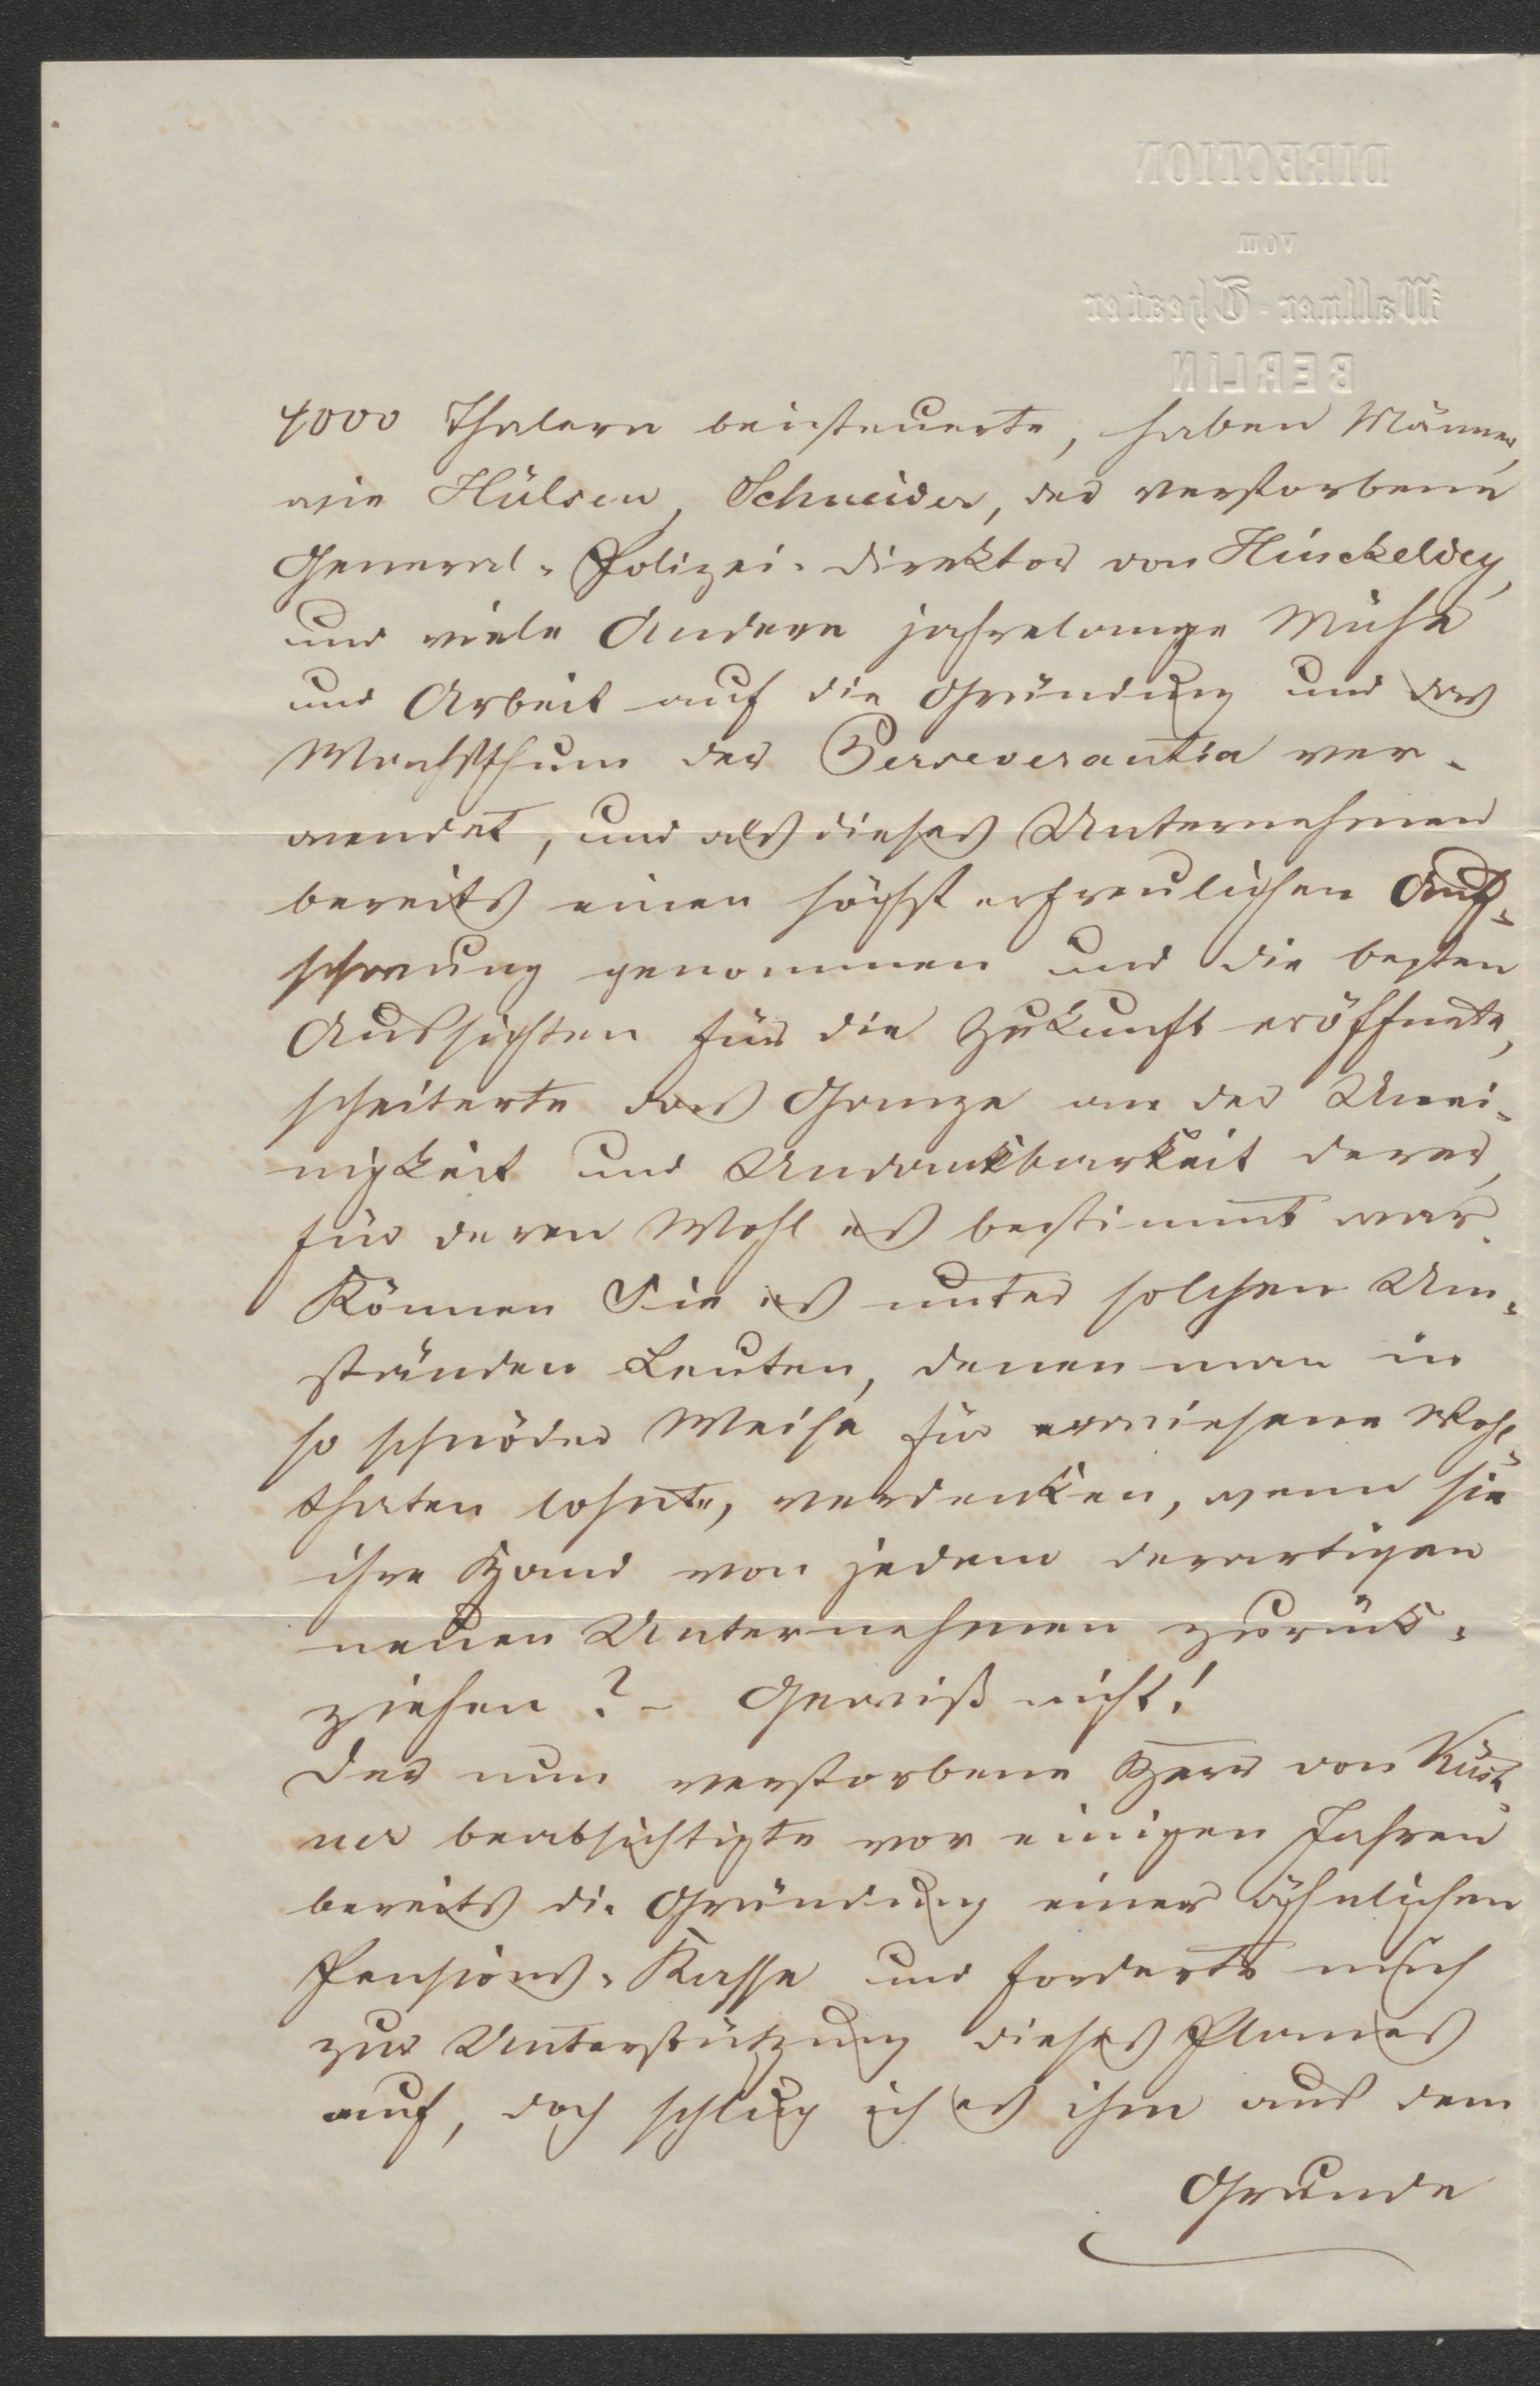 DIRECTION
vom
Wallner-Theater
BERLIN
4000 Thalern beisteuerte, haben Männer,
wie Hülsen, Schneider, der verstorbene
General-Polizei-Direktor von Hinckeldey,
und viele Andere jahrelange Mühe
und Arbeit auf die Gründung und das
Wachsthum der Perseverantia ver-
wendet, und als dieses Unternehmen
bereits einen höchst erfreulichen Auf-
schwung genommen und die besten
Aussichten für die Zukunft eröffnete,
scheiterte das Ganze an der Unei-
nigkeit und Undankbarkeit derer,
für deren Wohl es bestimmt war.
Können Sie es unter solchen Um-
ständen Leuten, denen man in
so schnöder Weise für erwiesene Wohl-
thaten lohnte, verdenken, wenn sie
ihre Hand von jedem derartigen
neuen Unternehmen zurück-
ziehen? – Gewiß nicht!
Der nun verstorbene Herr von Küst-
ner beabsichtigte vor einigen Jahren
bereits die Gründung einer ähnlichen
Pensions-Kasse und forderte mich
zur Unterstützung dieses Planes
auf, doch schlug ich es ihm aus dem
Grunde